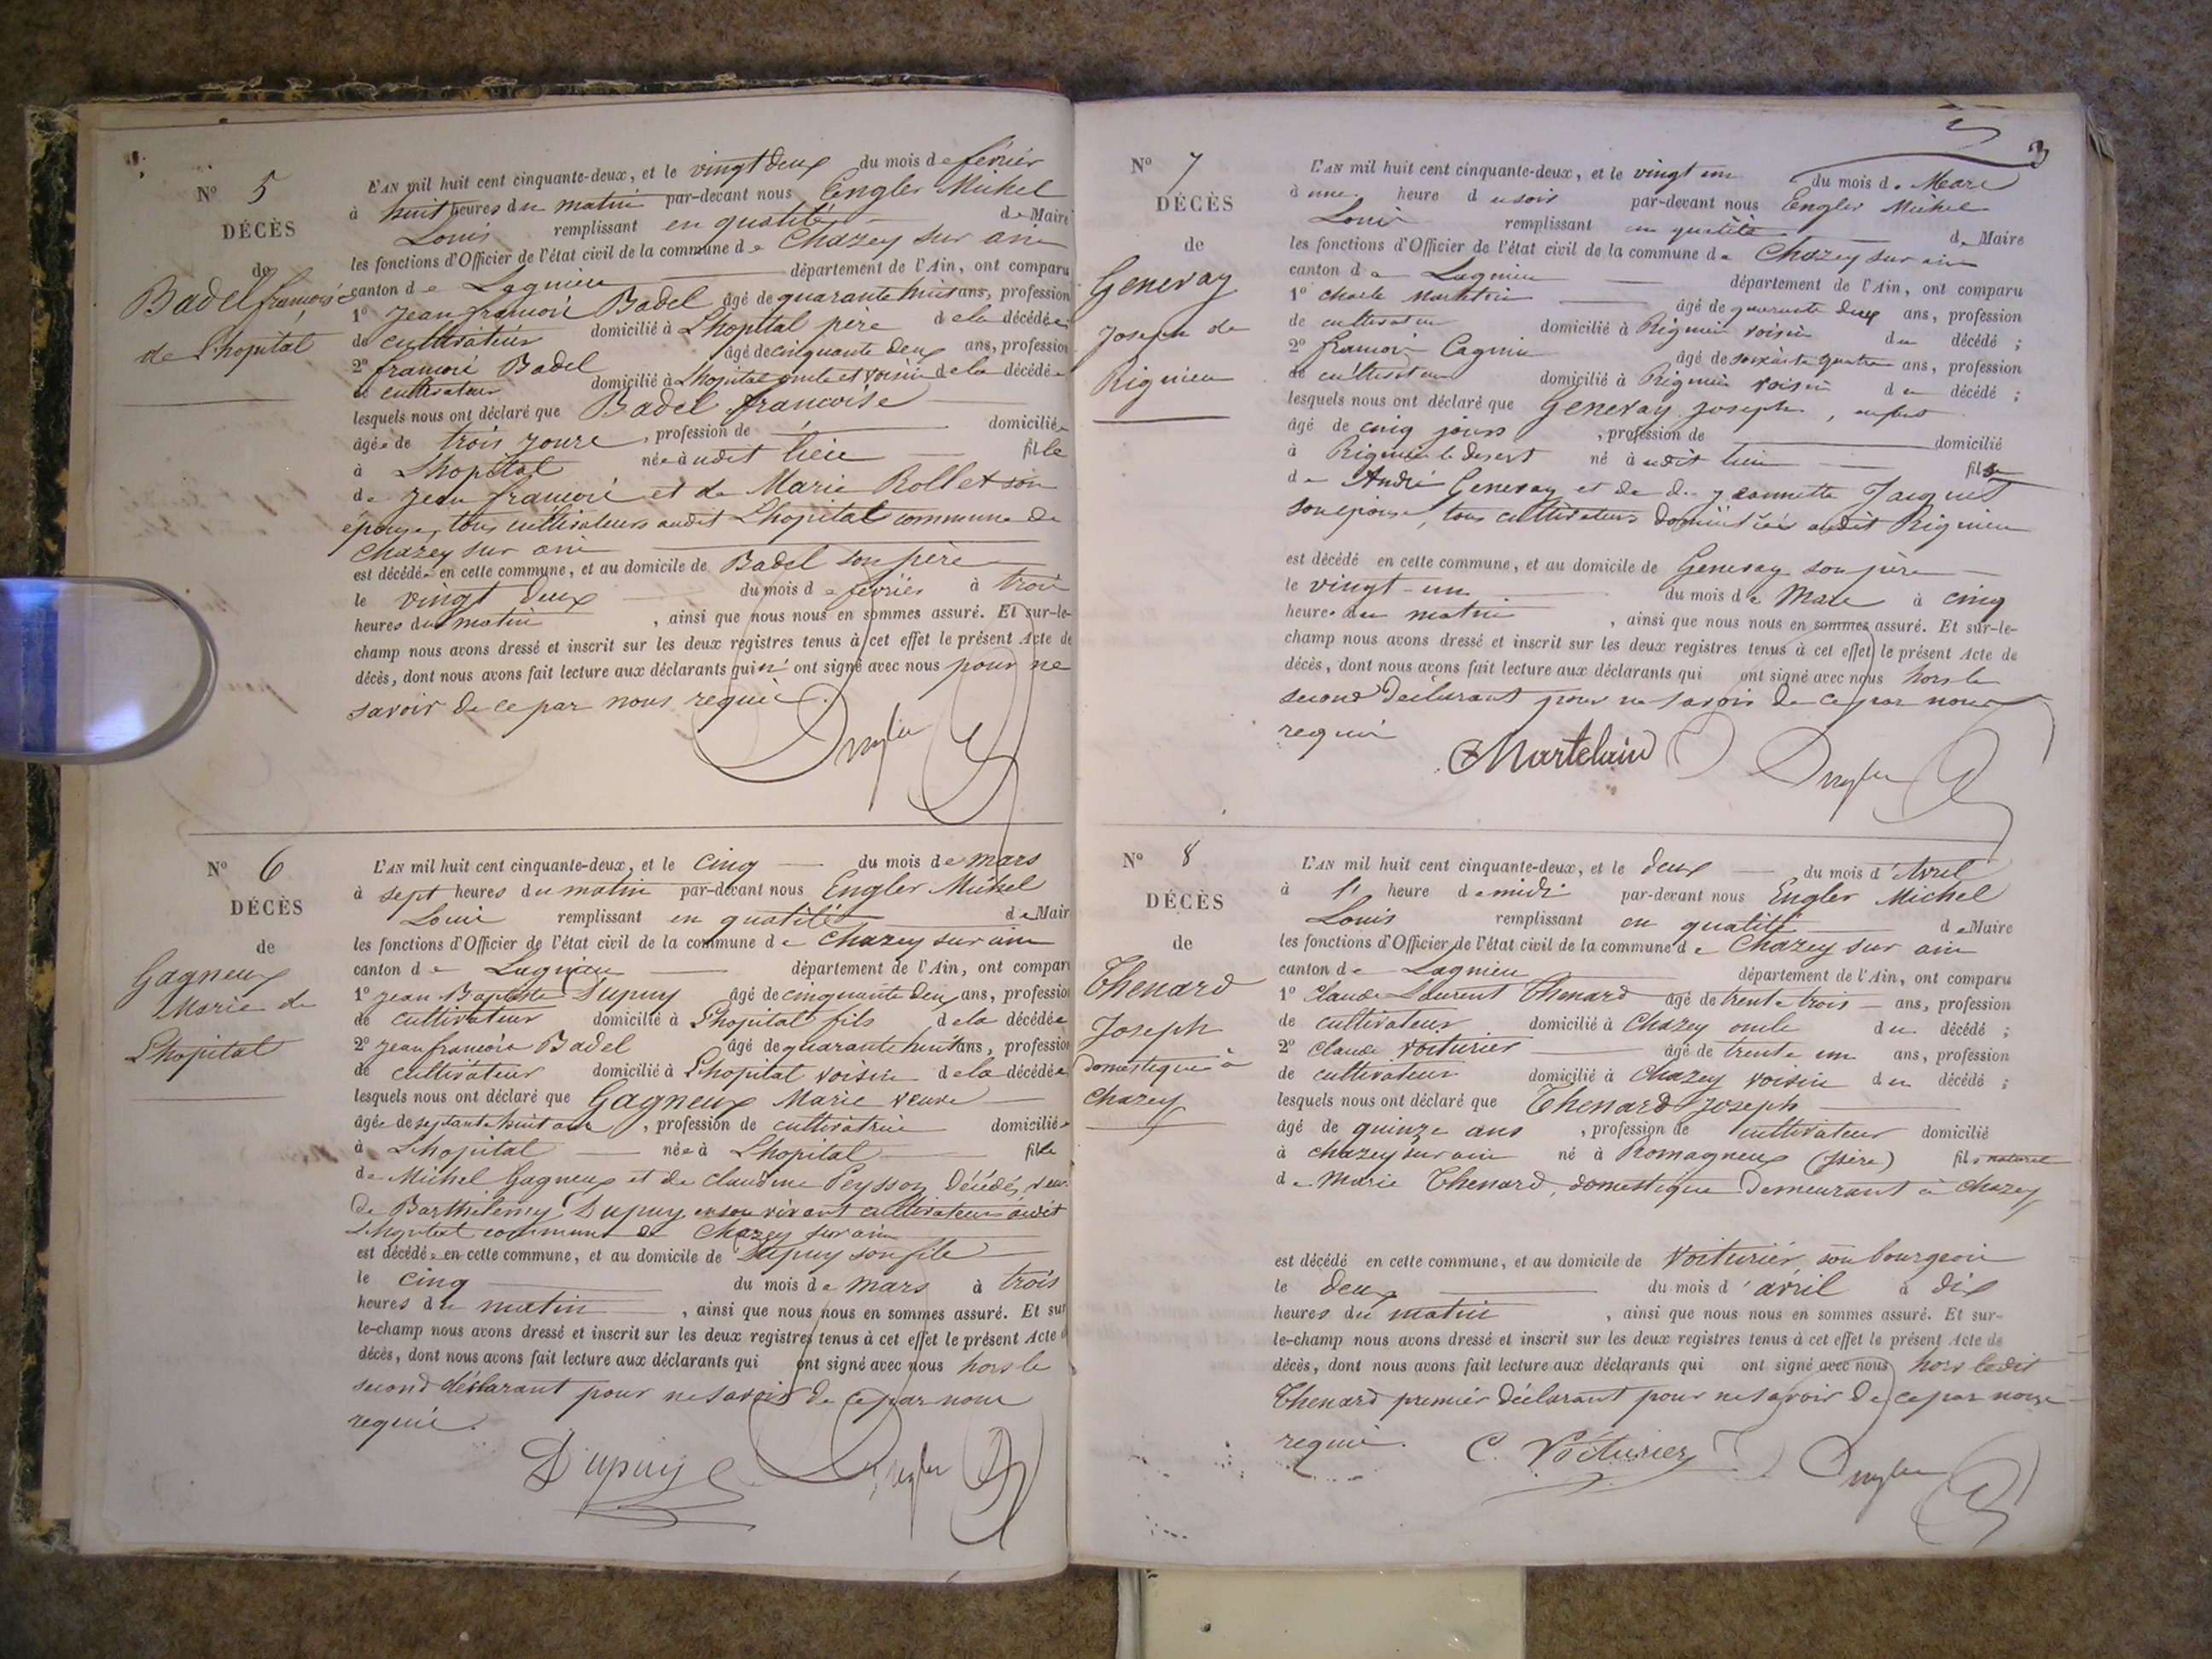 N° 5
DÉCÈS
de
Badel françoise
de Lhopital
L'AN mil huit cent cinquante-deux, et le vingt deux du mois de février
à huit heures du matin par-devant nous Engler Michel
Louis remplissant en qualité de Maire
les fonctions d'Officier de l'état civil de la commune de Chazey sur ain
canton de Lagnieu département de l'Ain, ont comparu
1° Jean françois Badel âgé de quarante huit ans, profession
de cultivateur domicilié à Lhopital père de la décédée
2° françois Badel âgé de cinquante deux ans, profession
de cultivateur domicilié à Lhopital oncle et voisin de la décédée
lesquels nous ont déclaré que Badel francoise
âgée de trois jours, profession de domiciliée
à Lhopital née audit lieu fille
de Jean françois et de Marie Rollet son
épouse, tous cultivateurs audit Lhopital commune de
Chazey sur ain
est décédée en cette commune, et au domicile de Badel son père
le vingt deux du mois de février à trois
heures du matin, ainsi que nous nous en sommes assuré. Et sur-le-
champ nous avons dressé et inscrit sur les deux registres tenus à cet effet le présent Acte de
décès, dont nous avons fait lecture aux déclarants qui n' ont signé avec nous pour ne
savoir de ce par nous requis.
Engler
N° 6
DÉCÈS
de
Gagneux
Marie de
Lhopital
L'AN mil huit cent cinquante-deux, et le cinq du mois de mars
à sept heures du matin par-devant nous Engler Michel
Louis remplissant en qualité de Mair
les fonctions d'Officier de l'état civil de la commune de Chazey sur ain
canton de Lagnieu département de l'Ain, ont compar
1° jean Baptiste Dupuy âgé de cinquante deux ans, professio
de cultivateur domicilié à Lhopital fils de la décédée
2° jean françois Badel âgé de quarante huit ans, professio
de cultivateur domicilié à Lhopital voisin de la décédée
lesquels nous ont déclaré que Gagneux Marie veuve
âgée de septante huit ans, profession de cultivatrice domiciliée
à Lhopital née à Lhopital fille
de Michel Gagneux et de claudine Peysson Décédés, veuve
de Barthélemy Dupuy en son vivant cultivateur audit
Lhopital commune de Chazey sur ain
est décédée en cette commune, et au domicile de Dupuy son fils
le cinq du mois de mars à trois
heures du matin, ainsi que nous nous en sommes assuré. Et sur
le-champ nous avons dressé et inscrit sur les deux registres tenus à cet effet le présent Acte d
décès, dont nous avons fait lecture aux déclarants qui ont signé avec nous hors le
second déclarant pour ne savoir de ce par nous
requis.
Dupuy Engler
3
N° 7
DÉCÈS
de
Genevay
Joseph de
Rignieu
L'AN mil huit cent cinquante-deux, et le vingt un du mois de Mars
à une heure du soir par-devant nous Engler Michel
Louis remplissant en qualité de Maire
les fonctions d'Officier de l'état civil de la commune de Chazey sur ain
canton de Lagnieu département de l'Ain, ont comparu
1° charle âgé de quarante deux ans, profession
de cultivateur domicilié à Rignieu voisin du décédé ;
2° françois Cagnin âgé de soixante quatre ans, profession
de cultivateur domicilié à Rignieu voisin du décédé ;
lesquels nous ont déclaré que Genevay Joseph, enfant
âgé de cinq jours, profession de domicilié
à Rignieu le desert né audit lieu fils
de André Genevay et de d. jeannette Jacquet
son épouse, tous cultivateurs domiciliés audit Rignieu
est décédé en cette commune, et au domicile de Genevay son père
le vingt-un du mois de Mars à cinq
heures du matin, ainsi que nous nous en sommes assuré. Et sur-le-
champ nous avons dressé et inscrit sur les deux registres tenus à cet effet le présent Acte de
décès, dont nous avons fait lecture aux déclarants qui ont signé avec nous hors le
second déclarant pour ne savoir de ce par nous
requis
Martelain Engler
N° 8
DÉCÈS
de
Thenard
Joseph
domestique à
Chazey
L'AN mil huit cent cinquante-deux, et le deux du mois d'Avril
à l' heure de midi par-devant nous Engler Michel
Louis remplissant en qualité de Maire
les fonctions d'Officier de l'état civil de la commune de Chazey sur ain
canton de Lagnieu département de l'Ain, ont comparu
1° Claude Laurent Thenard âgé de trente trois ans, profession
de cultivateur domicilié à Chazey oncle du décédé ;
2° Claude Voiturier âgé de trente un ans, profession
de cultivateur domicilié à Chazey voisin du décédé ;
lesquels nous ont déclaré que Thenard Joseph
âgé de quinze ans, profession de cultivateur domicilié
à chazey sur ain né à Romagneux (Isère) fils naturel
de Marie Thenard, domestique demeurant à Chazey
est décédé en cette commune, et au domicile de Voiturier son bourgeois
le deux du mois d'avril à dix
heures du matin, ainsi que nous nous en sommes assuré. Et sur-
le-champ nous avons dressé et inscrit sur les deux registres tenus à cet effet le présent Acte de
décès, dont nous avons fait lecture aux déclarants qui ont signé avec nous hors ledit
Thenard premier déclarant pour ne savoir de ce par nous
requis. C. Voiturier Engler